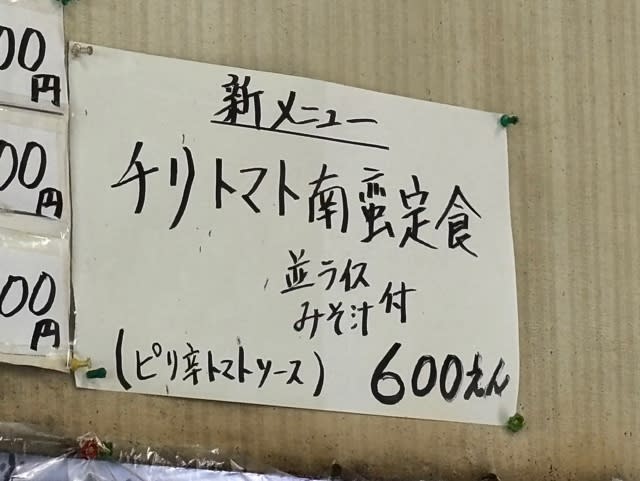 新メニュー
チリトマト南蛮定食
並ライス
みそ汁付
(ピリ辛トマトソース) 600えん
00円
00円
00円